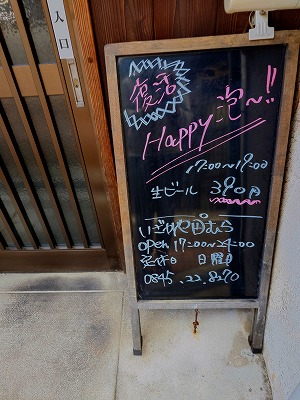 入口
復活
Happy 泡〜!!
17:00〜19:00
生ビール 390円
いざかや田むら
open 17:00〜24:00
定休日 日曜日
0845.22.8270